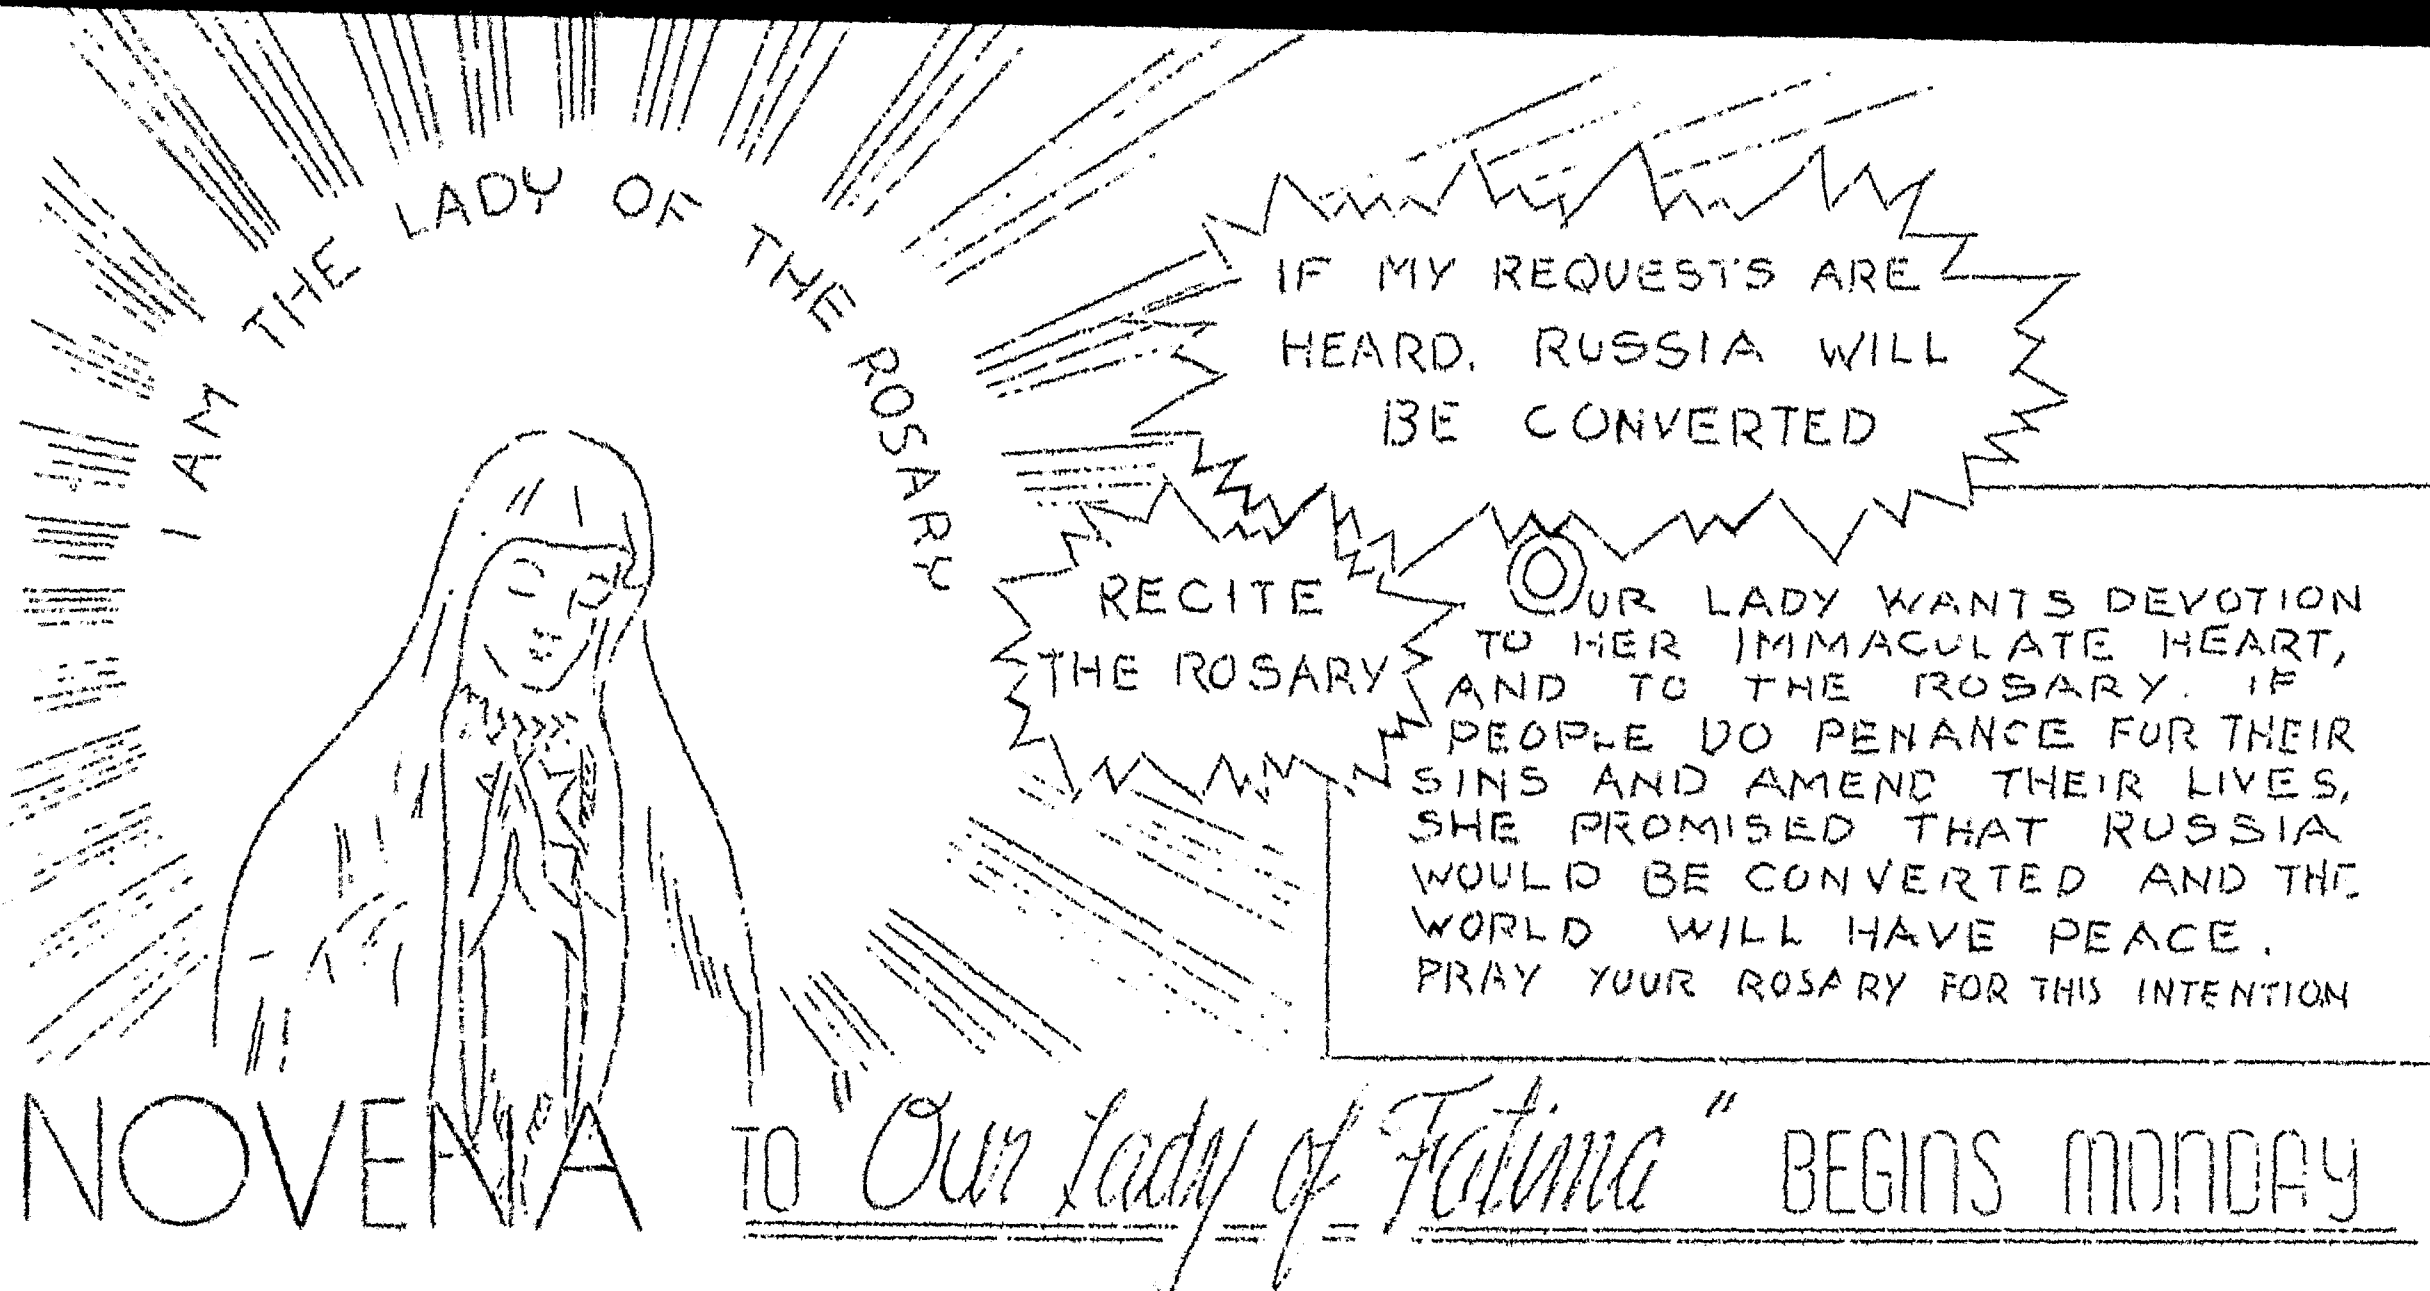 I AM THE LADY OF THE ROSARY
IF MY REQUESTS ARE
HEARD, RUSSIA WILL
BE CONVERTED
RECITE
THE ROSARY
OUR LADY WANTS DEVOTION
TO HER IMMACULATE HEART,
AND TO THE ROSARY. IF
PEOPLE DO PENANCE FOR THEIR
SINS AND AMEND THEIR LIVES,
SHE PROMISED THAT RUSSIA
WOULD BE CONVERTED AND THE
WORLD WILL HAVE PEACE.
PRAY YOUR ROSARY FOR THIS INTENTION
NOVENA TO "Our Lady of Fatima" BEGINS MONDAY